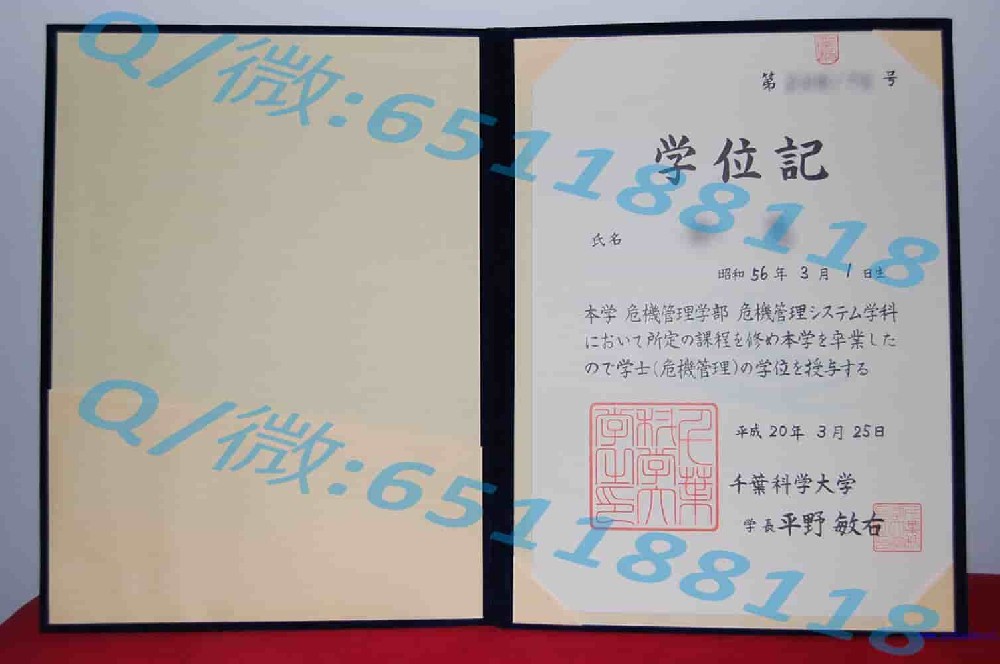 Q/微:651188118
第 号
学位記
氏名
昭和56年3月1日生
本学 危機管理学部 危機管理システム学科
において所定の課程を修め本学を卒業した
ので学士(危機管理)の学位を授与する
平成20年3月25日
千葉科学大学
学長 平野敏右
千葉科学大学之印
Q/微:651188118